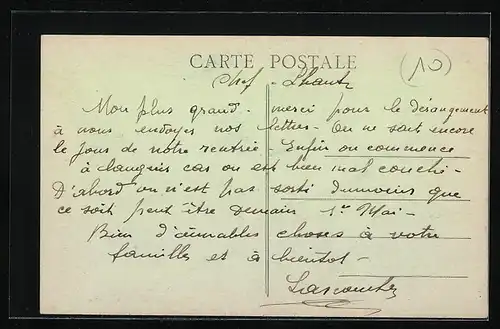 CARTE POSTALE
(10)
Chef
Mon plus grand merci pour le dérangement
à nous envoyer nos lettres - On ne sait encore
le jour de notre rentrée - Enfin on commence
à languir car on est bien mal couché -
D'abord on n'est pas sorti dumoins que
ce soit peut être demain 1er Mai -
Bien d'aimables choses à votre
famille et à bientot -